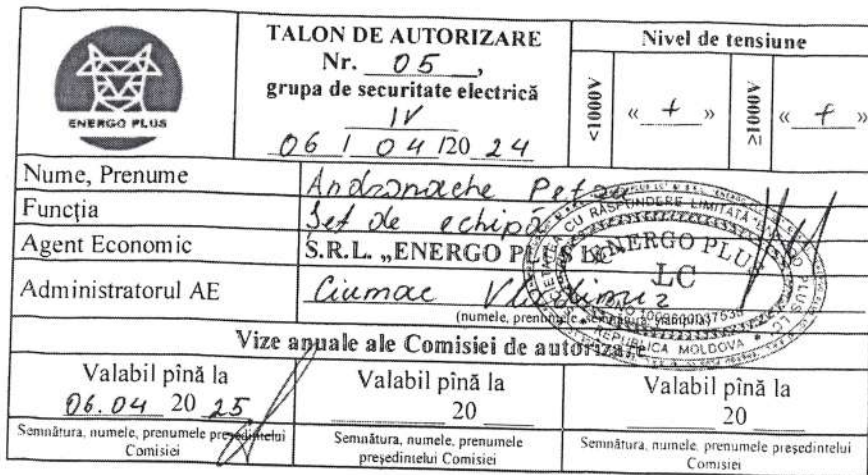 ENERGO PLUS
TALON DE AUTORIZARE
Nr. 05,
grupa de securitate electrică
IV
06 / 04 /20 24
Nivel de tensiune
<1000V « + » ≥1000V « + »
Nume, Prenume Andronache Petru
Funcția Șef de echipă
Agent Economic S.R.L. „ENERGO PLUS LC”
Administratorul AE Ciumac Vladimir
(numele, prenumele, semnătura, ștampila)
SOCIETATEA CU RĂSPUNDERE LIMITATĂ
ENERGO PLUS
LC
REPUBLICA MOLDOVA
Vize anuale ale Comisiei de autorizare
Valabil pînă la Valabil pînă la Valabil pînă la
06.04 20 25 20 20
Semnătura, numele, prenumele președintelui Comisiei
Semnătura, numele, prenumele președintelui Comisiei
Semnătura, numele, prenumele președintelui Comisiei